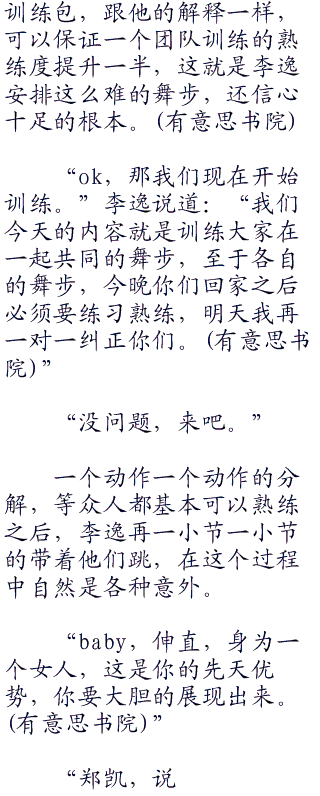 训练包，跟他的解释一样，
可以保证一个团队训练的熟
练度提升一半，这就是李逸
安排这么难的舞步，还信心
十足的根本。(有意思书院)
“ok，那我们现在开始
训练。”李逸说道：“我们
今天的内容就是训练大家在
一起共同的舞步，至于各自
的舞步，今晚你们回家之后
必须要练习熟练，明天我再
一对一纠正你们。(有意思书
院)”
“没问题，来吧。”
一个动作一个动作的分
解，等众人都基本可以熟练
之后，李逸再一小节一小节
的带着他们跳，在这个过程
中自然是各种意外。
“baby，伸直，身为一
个女人，这是你的先天优
势，你要大胆的展现出来。
(有意思书院)”
“郑凯，说